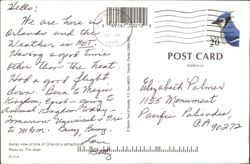 Hello!
We are here in
Orlando and the
Weather is HOT.
Having a good time
other than the heat.
Had a good flight
down. Been to Magic
Kingdom, Epcot - goes to
Tomorrow Universal & Trip
to MGM. Busy, Busy.
Love
Aerial view of one of Orlando's attractions
Photo by Tim Allen
49167 30010 9
20
POST CARD
Address
Elizabeth Palmer
1155 Monument
Pacific Palisades,
CA 90272